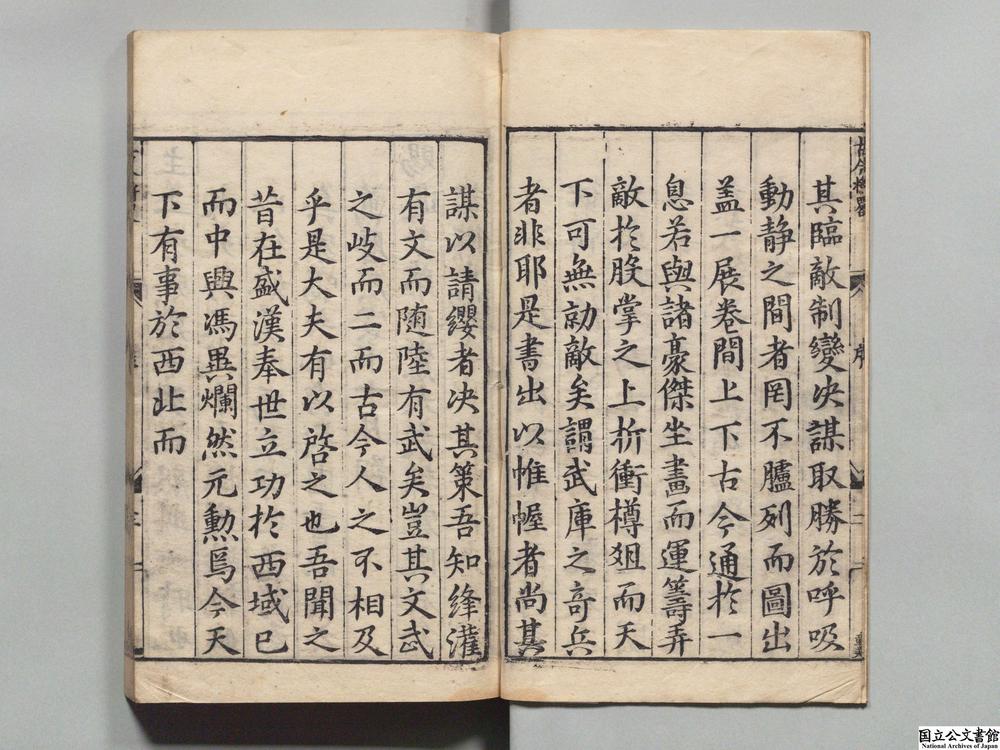 其臨敵制變决謀取勝於呼吸
動靜之間者罔不臚列而圖出
盖一展卷間上下古今通於一
息若與諸豪傑坐畫而運籌弄
敵於股掌之上折衝樽俎而天
下可無勍敵矣謂武庫之竒兵
者非耶是書出以帷幄者尚其
謀以請纓者决其策吾知絳灌
有文而随陸有武矣豈其文武
之歧而二而古今人之不相及
乎是大夫有以啓之也吾聞之
昔在盛漢奉世立功於西域已
而中興馮異爛然元勳焉今天
下有事於西北而
国立公文書館
National Archives of Japan